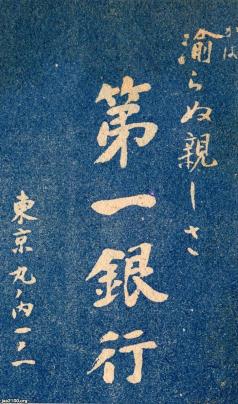 渝らぬ親しさ
かは
第一銀行
東京丸ノ内一ノ一
jaa2100.org